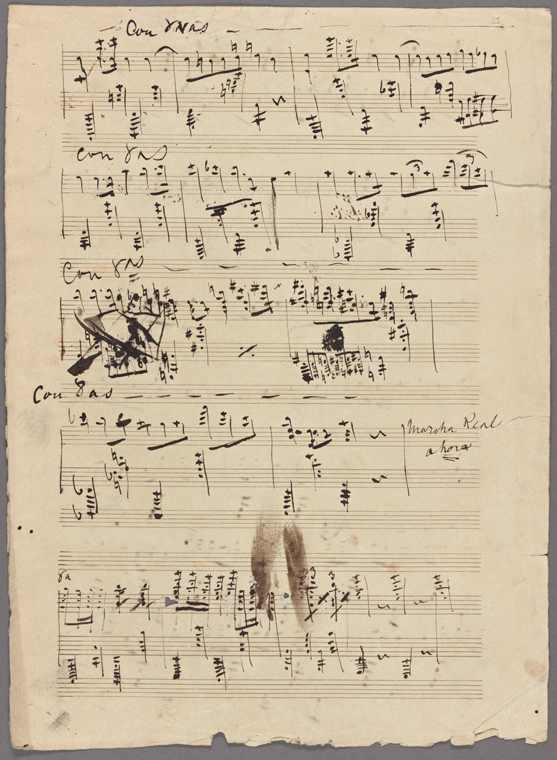 Con 8vas
Con 8as
Con 8as
Con 8as
Marcha Real
ahora
8a